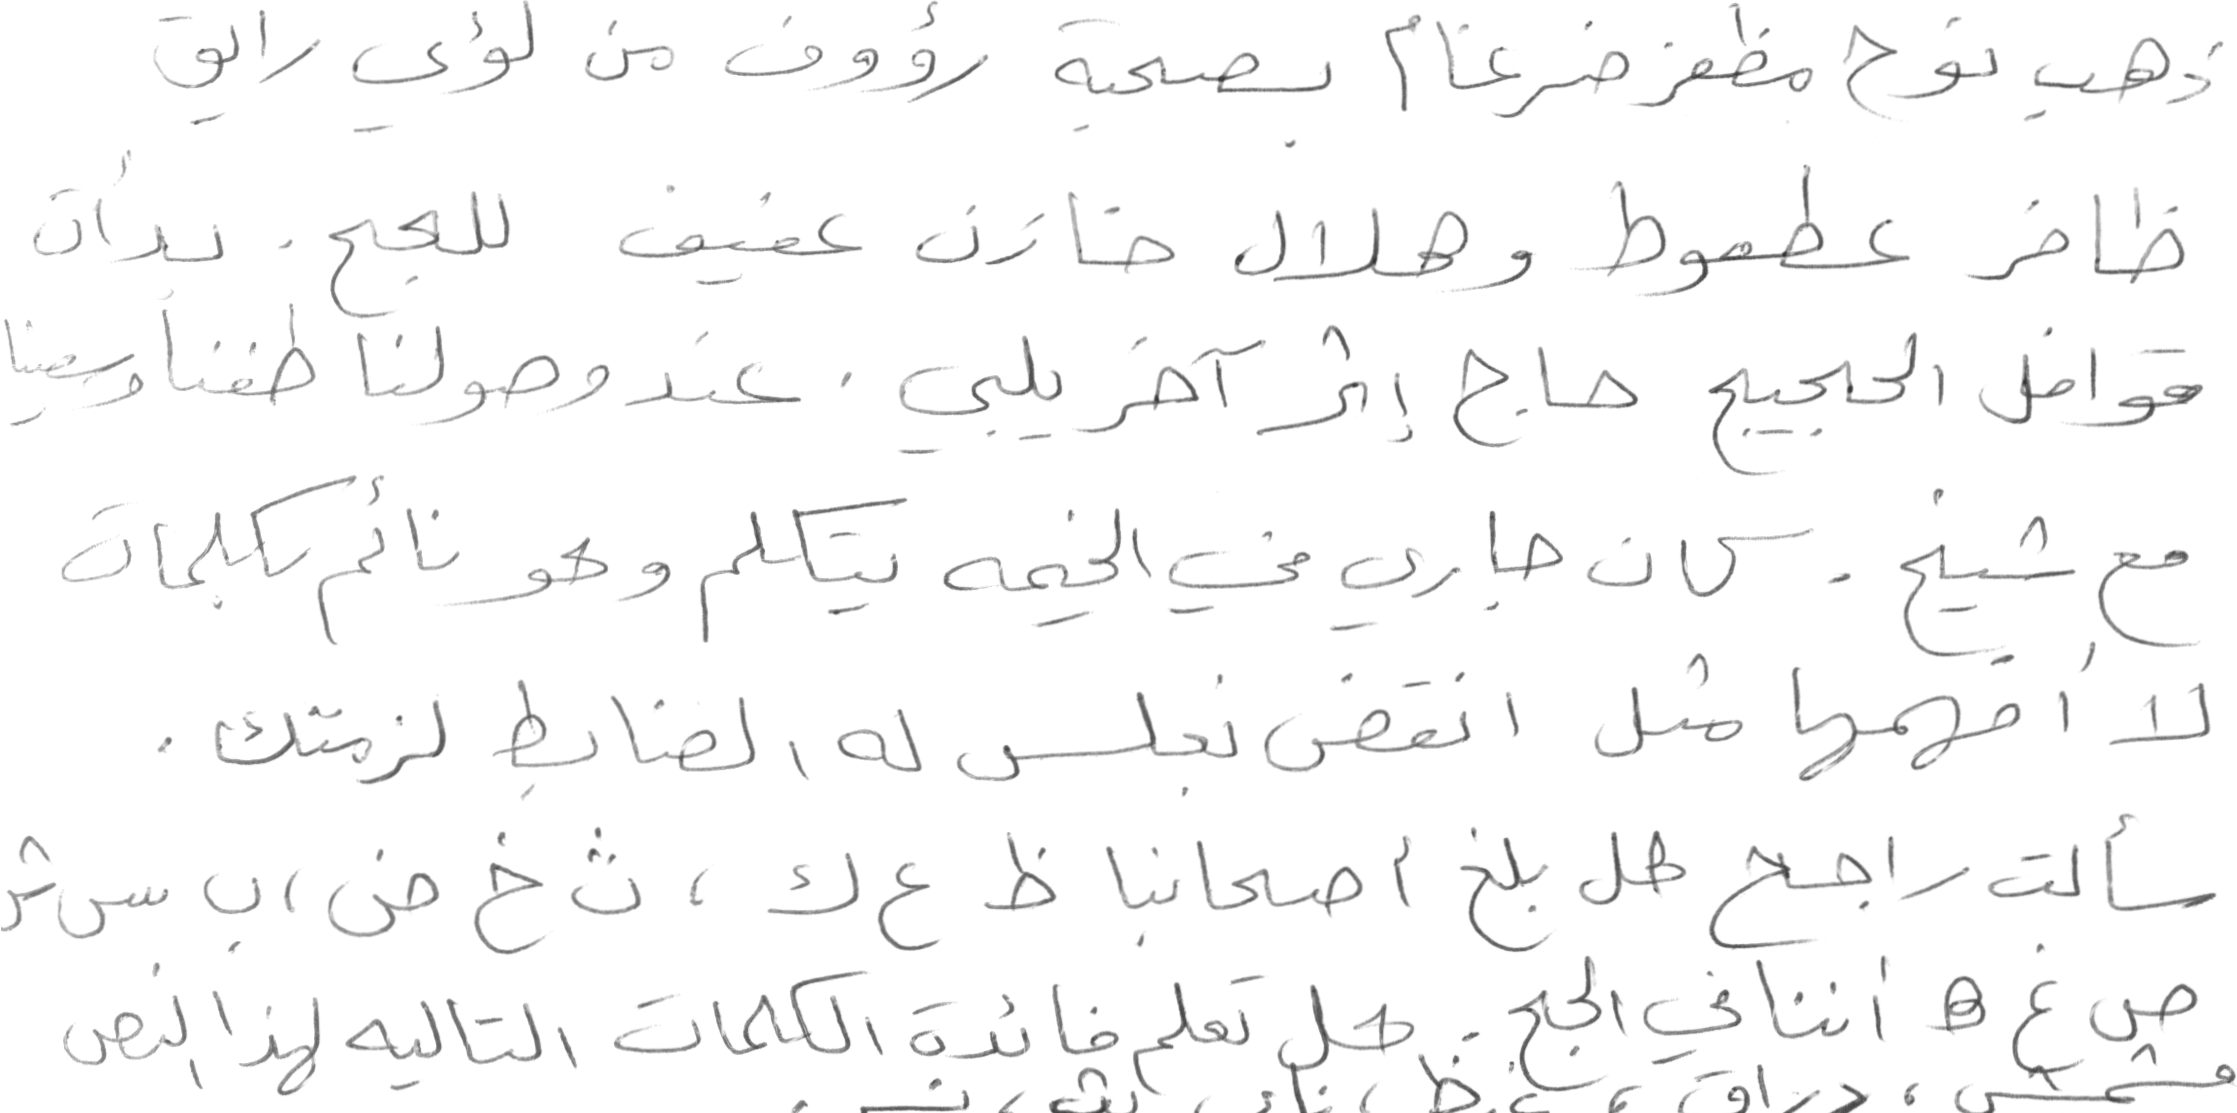 ذهب نوح مظفر ضرغام بصحبة رؤوف من لؤي رائق
ظافر عطعوط وهلال خازن عفيف للحج. بدأت
قوافل الحجيج حاج إثر آخر يلبي. عند وصولنا طفنا وسعينا
مع شيخ. كان جاري في الخيمه يتكلم وهو نائم بكلمات
لا أفهمها مثل انقض نعلس له الضابط لزمتك.
سألت راجح هل بلغ أصحابنا ظ ع ك، ث خ ض، ب س ش
ص غ ه أننا في الحج. هل تعلم فائدة الكلمات التاليه لهذا النص
مشمش، دراق،